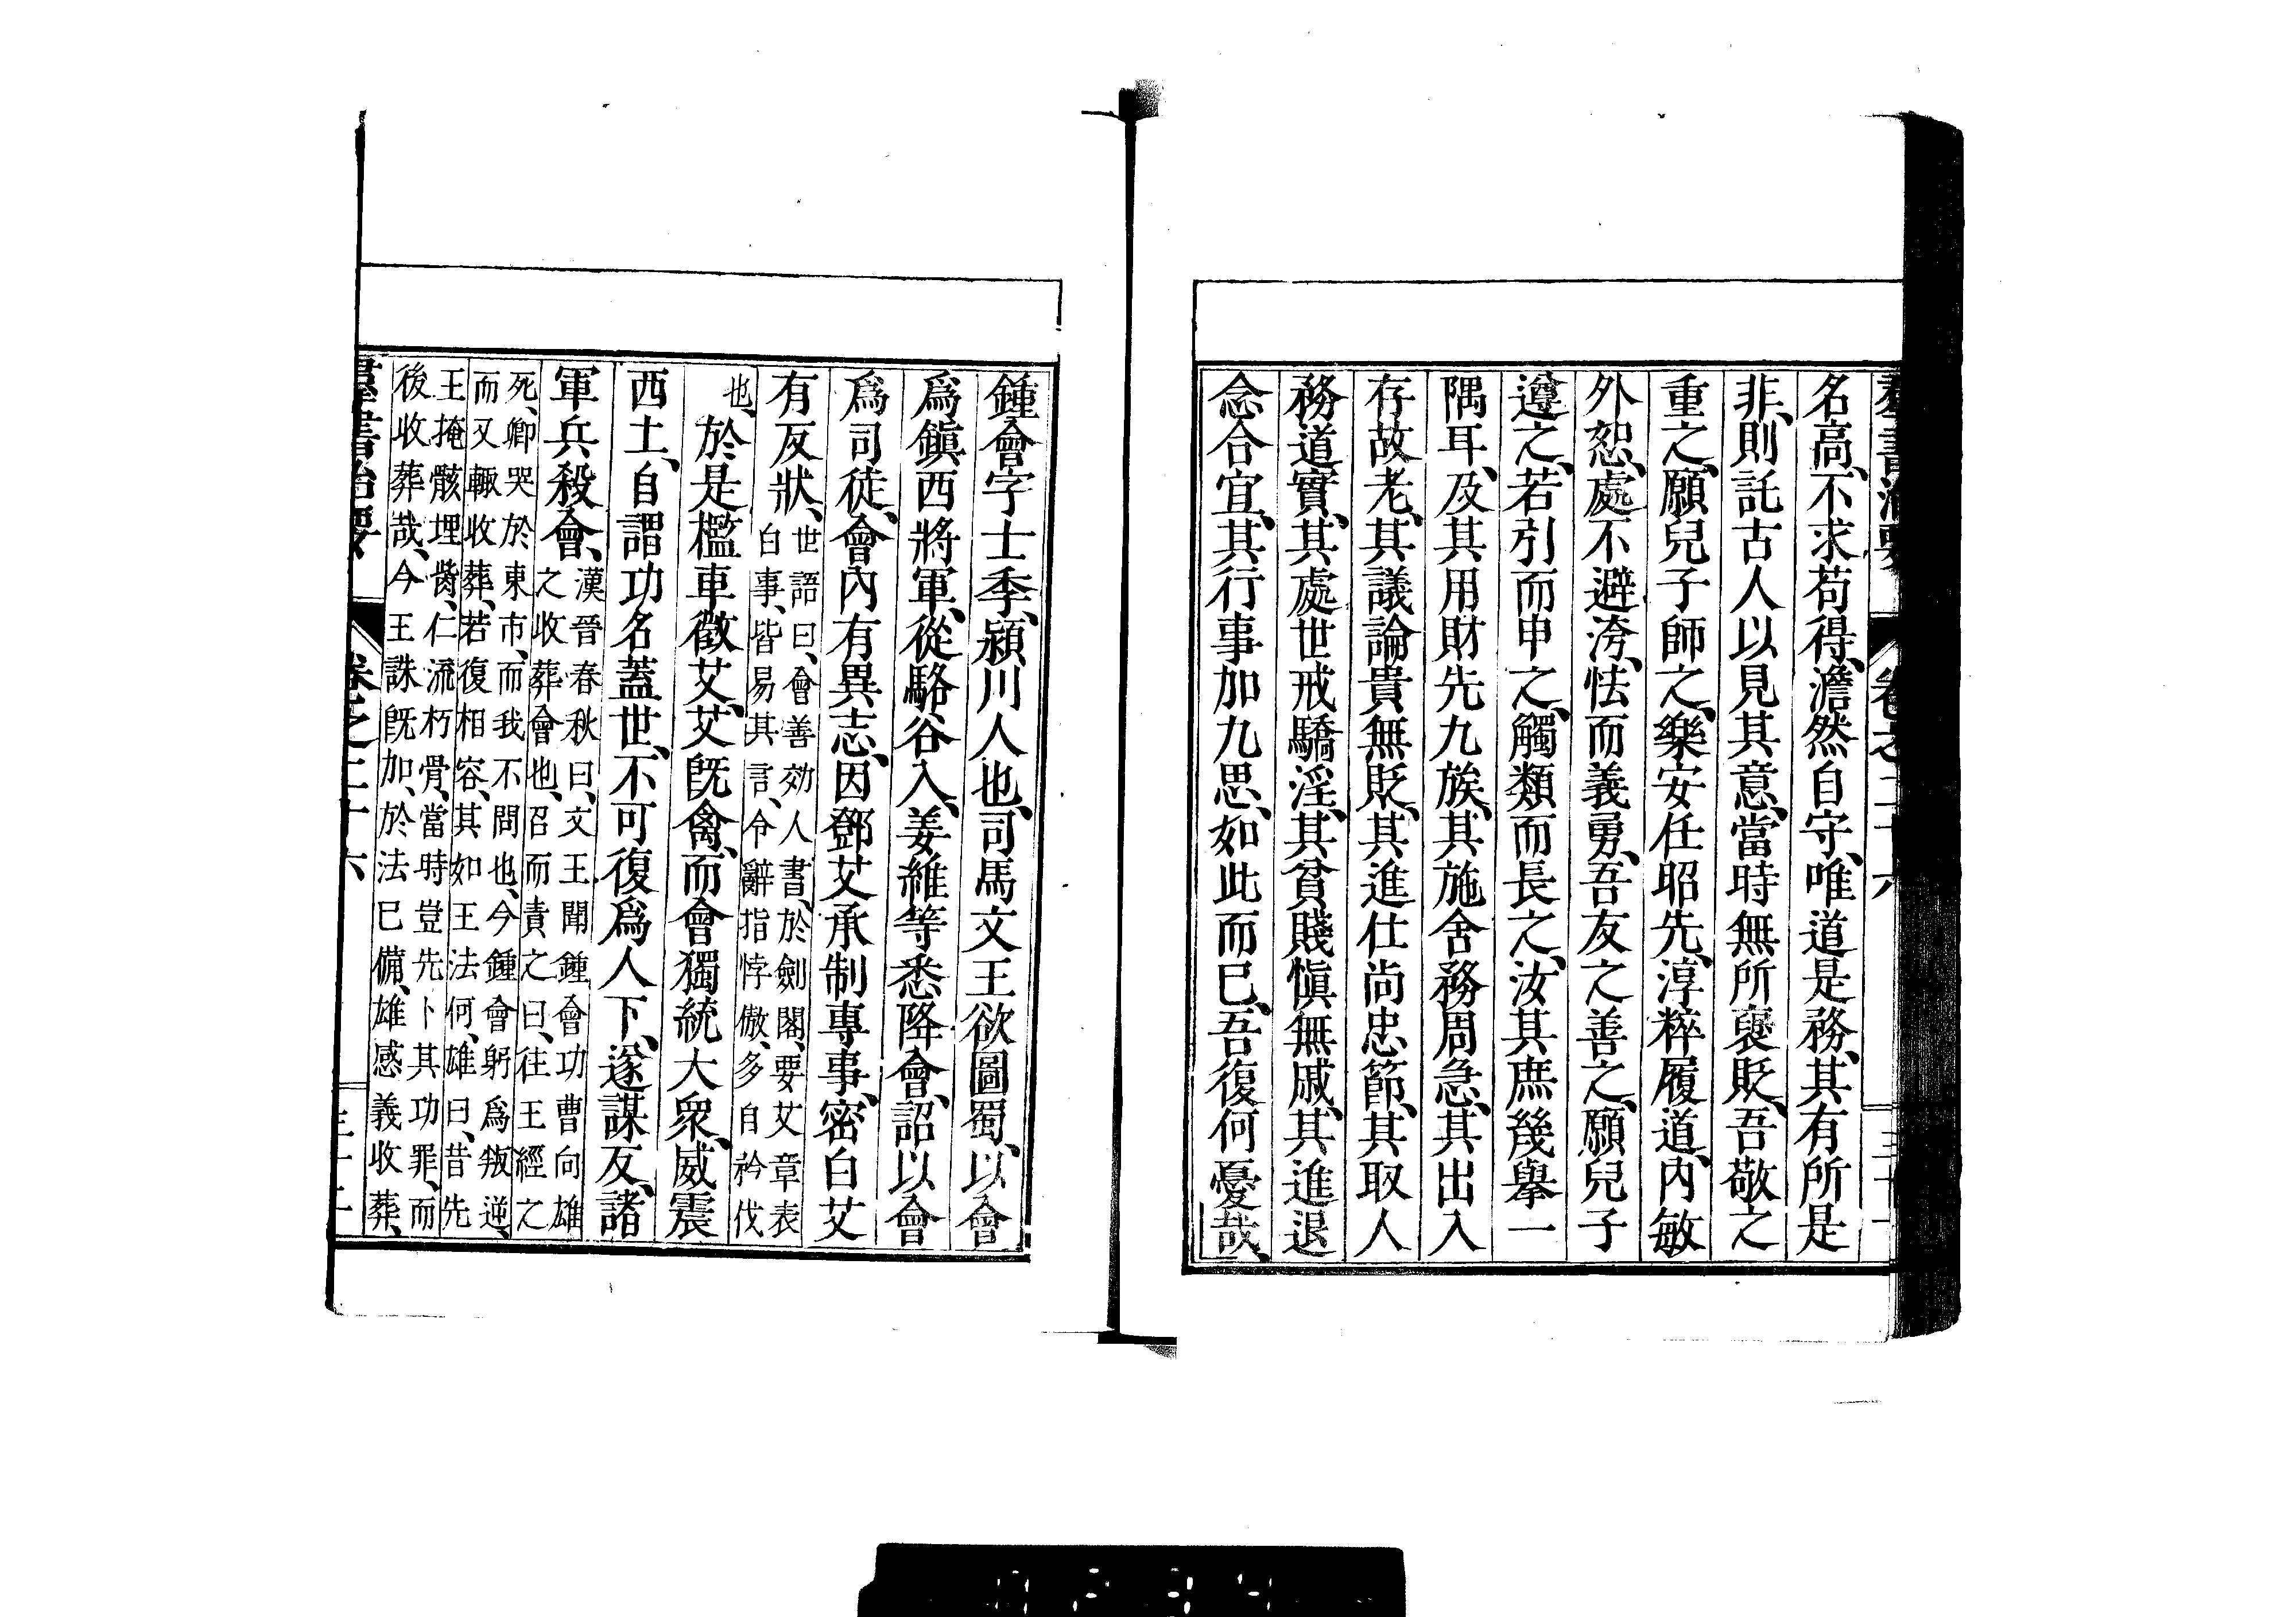 羣書治要 卷之二十六 三十一
名高、不求苟得、澹然自守、唯道是務、其有所是
非、則託古人以見其意、當時無所褒貶、吾敬之
重之、願兒子師之、樂安任昭先、淳粹履道、內敏
外恕、處不避洿、怯而義勇、吾友之善之、願兒子
遵之、若引而申之、觸類而長之、汝其庶幾舉一
隅耳、及其用財先九族、其施舍務周急、其出入
存故老、其議論貴無貶、其進仕尚忠節、其取人
務道實、其處世戒驕淫、其貧賤慎無戚、其進退
念合宜、其行事加九思、如此而已、吾復何憂哉、
鍾會字士季、潁川人也、司馬文王欲圖蜀、以會
爲鎮西將軍、從駱谷入、姜維等悉降會、詔以會
爲司徒、會內有異志、因鄧艾承制專事、密白艾
有反狀、
世語曰、會善効人書、於劍閣、要艾章表
白事、皆易其言、令辭指悖慠、多自衿伐
也、
於是檻車徵艾、艾既禽、而會獨統大衆、威震
西土、自謂功名蓋世、不可復爲人下、遂謀反、諸
軍兵殺會、
漢晉春秋曰、文王聞鍾會功曹向雄
之收葬會也、召而責之曰、往王經之
死、卿哭於東市、而我不問也、今鍾會躬爲叛逆、
而又輙收葬、若復相容、其如王法何、雄曰、昔先
王掩骸埋胔、仁流朽骨、當時豈先卜其功罪、而
後收葬哉、今王誅既加、於法已備、雄感義收葬、
羣書治要 卷之二十六